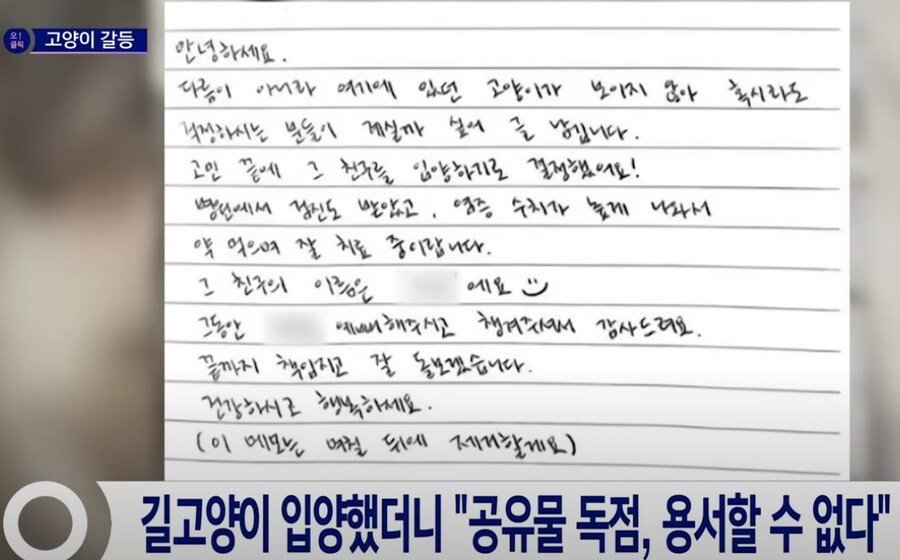 오!
클릭
고양이 갈등
안녕하세요.
다름이 아니라 여기에 있던 고양이가 보이지 않아 혹시라도
걱정하시는 분들이 계실까 싶어 글 남깁니다.
고민 끝에 그 친구를 입양하기로 결정했어요!
병원에서 검진도 받았고, 염증 수치가 높게 나와서
약 먹으며 잘 치료 중이랍니다.
그 친구의 이름은 에요
그동안 예뻐해주시고 챙겨주셔서 감사드려요.
끝까지 책임지고 잘 돌보겠습니다.
건강하시고 행복하세요.
(이 메모는 며칠 뒤에 제거할게요)
길고양이 입양했더니 "공유물 독점, 용서할 수 없다"